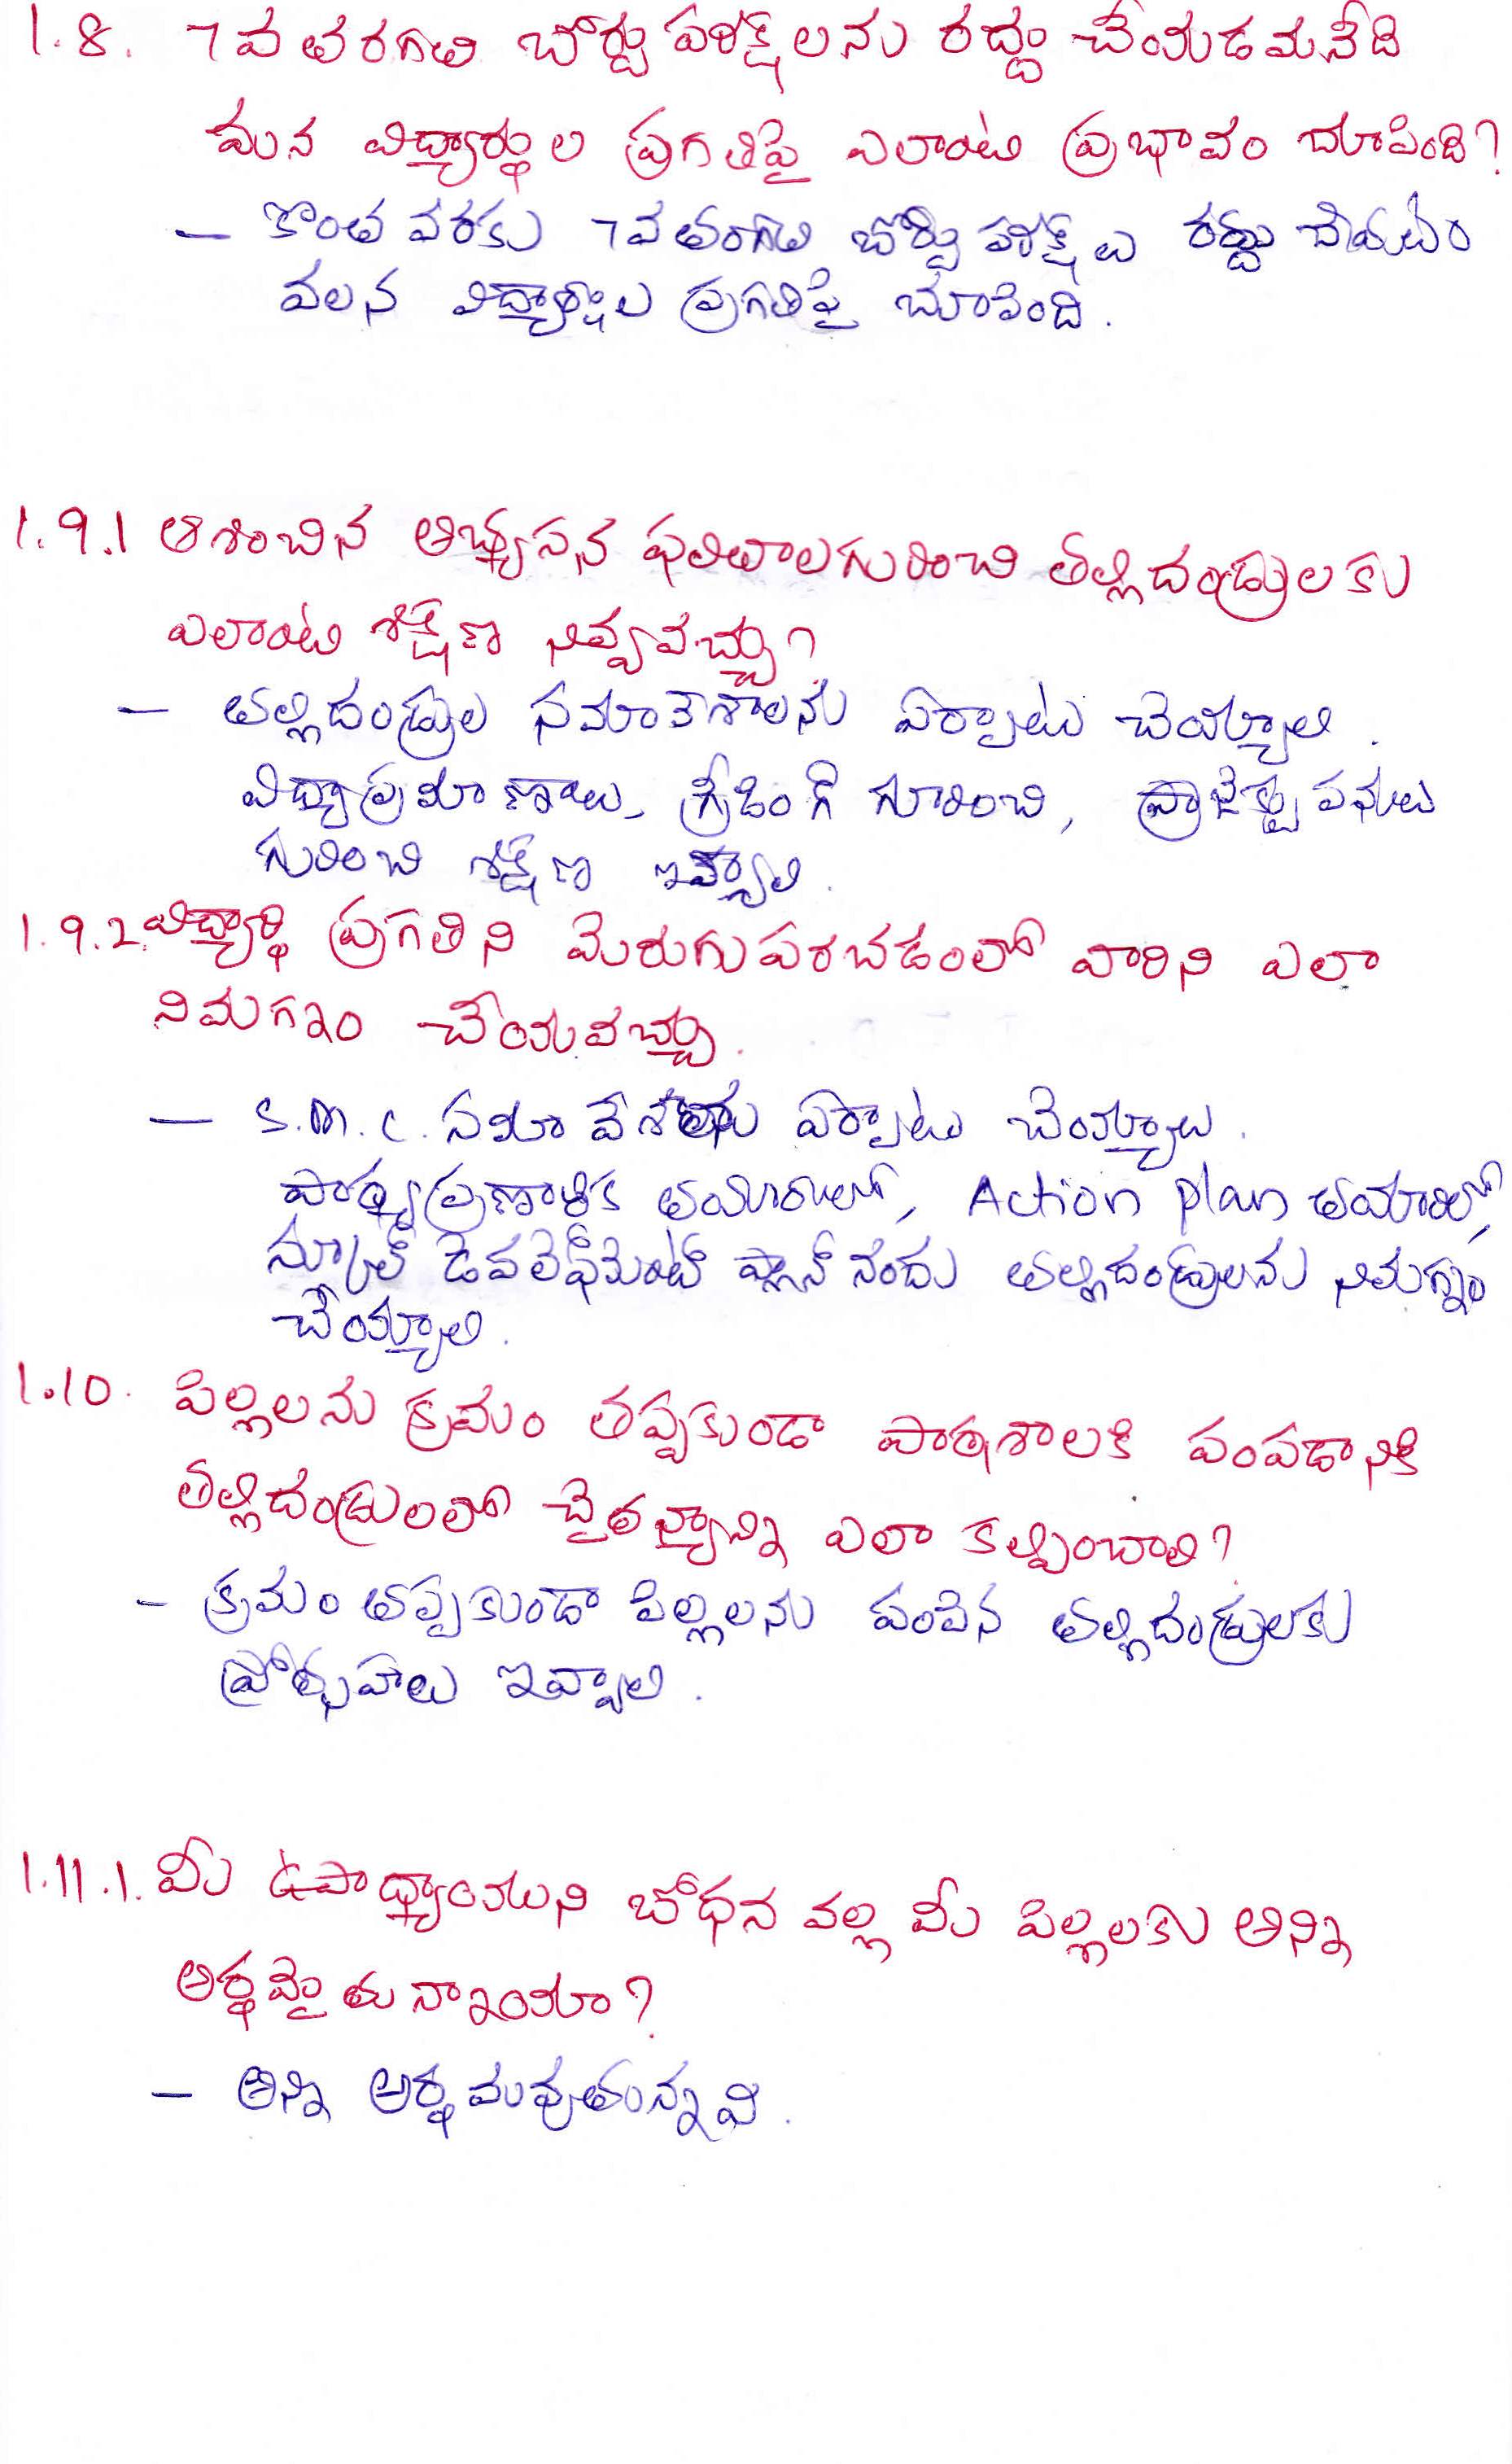 1.8. 7వ తరగతి బోర్డు పరీక్షలను రద్దు చేయడమనేది
మన విద్యార్థుల ప్రగతిపై ఎలాంటి ప్రభావం చూపింది?
- కొంత వరకు 7వ తరగతి బోర్డు పరీక్ష ల రద్దు చేయటం
వలన విద్యార్థుల ప్రగతిపై చూపింది.
1.9.1 ఆశించిన అభ్యసన ఫలితాలగురించి తల్లిదండ్రులకు
ఎలాంటి శిక్షణ నివ్వవచ్చు?
- తల్లిదండ్రుల సమావేశాలను ఏర్పాటు చెయ్యాలి.
విద్యాప్రమాణాలు, గ్రేడింగ్ గూరించి, ప్రాజెక్టు పనులు
గురించి శిక్షణ ఇవ్వాలి.
1.9.2. విద్యార్థి ప్రగతిని మెరుగుపరచడంలో వారిని ఎలా
నిమగ్నం చేయవచ్చు.
- S.M.C. సమావేశాలను ఏర్పాటు చెయ్యాలి.
పాఠ్యప్రణాళిక తయారీలో, Action plan తయారిలో,
స్కూల్ డెవలెఫ్‌మెంట్ ప్లాన్ నందు తల్లిదండ్రులను నిమగ్నం
చేయ్యాలి.
1.10. పిల్లలను క్రమం తప్పకుండా పాఠశాలకి పంపడానికి
తల్లిదండ్రులలో చైతన్యాన్ని ఎలా కల్పించాలి?
- క్రమం తప్పకుండా పిల్లలను పంపిన తల్లిదండ్రులకు
ప్రోత్సహాలు ఇవ్వాలి.
1.11.1. మీ ఉపాధ్యాయుని బోధన వల్ల మీ పిల్లలకు అన్ని
అర్థమైతున్నాయా?
- అన్ని అర్థమవుతున్నవి.